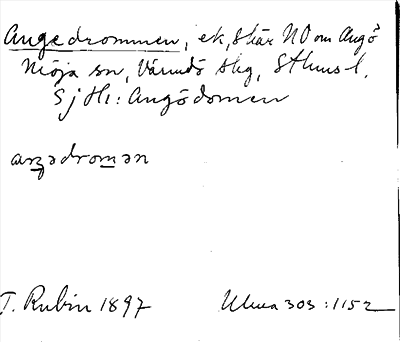 Angedrommen, ek, skär NO om Angö
Möja sn, Värmdö skg, Sthms l.
Sjtl: Angödomen
aŋʒədromən
T. Rubin 1897
Ulma 303:1152